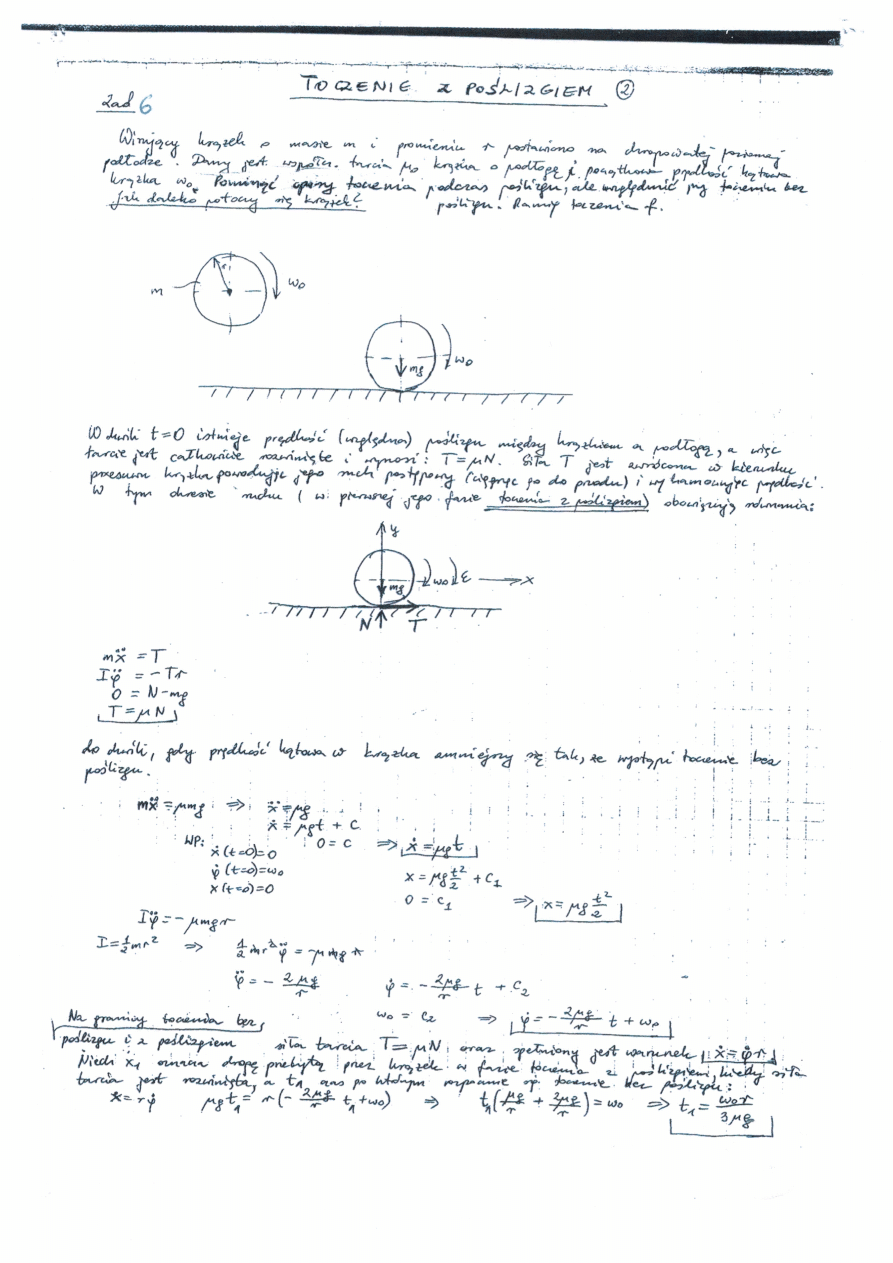 TOCZENIE z POŚLIZGIEM ②
Zad 6
Wirujący krążek o masie m i promieniu r postawiono na chropowatej poziomej
podłodze. Dany jest współcz. tarcia μ₀ krążka o podłogę i początkowa prędkość kątowa
krążka ω₀. Pominąć opory toczenia podczas poślizgu, ale uwzględnić przy toczeniu bez
Jak daleko potoczy się krążek? poślizgu. Ramię toczenia f.
r
m ω₀
mg ω₀
W chwili t=0 istnieje prędkość (względna) poślizgu między krążkiem a podłogą, a więc
tarcie jest całkowicie rozwinięte i wynosi: T=μN. Siła T jest zwrócona w kierunku
przesuwu krążka powodując jego ruch postępowy (ciągnąc go do przodu) i wyhamowując prędkość.
W tym okresie ruchu (w pierwszej jego fazie toczenia z poślizgiem) obowiązują równania:
y
mg ω₀ ε x
N T
mẍ = T
Iφ̈ = -Tr
0 = N-mg
T=μN
do chwili, gdy prędkość kątowa ω krążka zmniejszy się tak, że wystąpi toczenie bez
poślizgu.
mẍ=μmg ⇒ ẍ=μg
ẋ=μgt + C
WP: 0 = C ⇒ ẋ=μgt
ẋ(t=0)=0
φ̇(t=0)=ω₀ x=μg t²/2 + C₁
x(t=0)=0 0 = C₁ ⇒ x=μg t²/2
Iφ̈=-μmgr
I=½mr² ⇒ ½mr²φ̈ = -μmgr
φ̈ = - 2μg/r φ̇ = - 2μg/r t + C₂
Na granicy toczenia bez ω₀ = C₂ ⇒ φ̇=- 2μg/r t + ω₀
poślizgu i z poślizgiem siła tarcia T=μN oraz spełniony jest warunek ẋ=φ̇r
Niech x₁ oznacza drogę przebytą przez krążek w fazie toczenia z poślizgiem, kiedy siła
tarcia jest rozwinięta, a t₁ czas po którym rozpocznie się toczenie bez poślizgu:
ẋ=rφ̇ μgt₁ = r(- 2μg/r t₁+ω₀) ⇒ t₁(μg/r + 2μg/r) = ω₀ ⇒ t₁= ω₀r/3μg